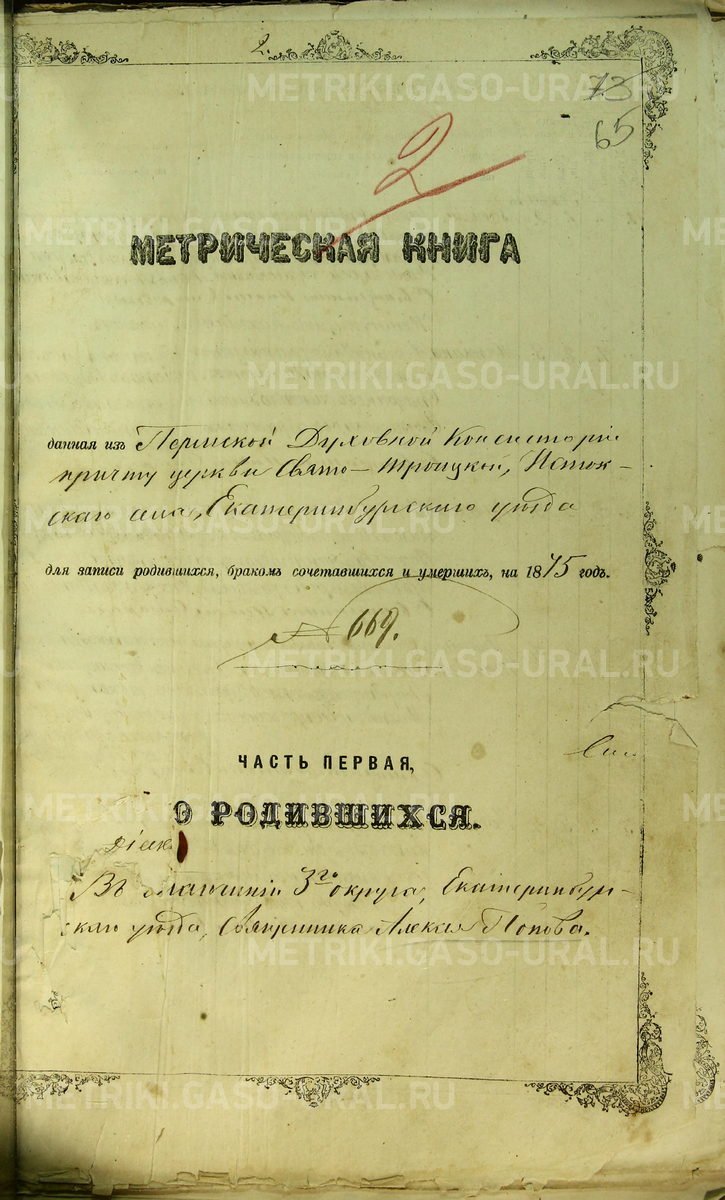 2.
73
65
2
МЕТРИЧЕСКАЯ КНИГА
данная изъ Пермской Духовной Консисторіи
причту церкви Свято-Троицкой, Исток-
скаго села, Екатеринбургскаго уѣзда
для записи родившихся, бракомъ сочетавшихся и умершихъ, на 1875 годъ.
№ 669.
ЧАСТЬ ПЕРВАЯ,
О РОДИВШИХСЯ.
Въ 3го округа, Екатеринбург-
скаго уѣзда, Священника Алексѣя Попова.
METRIKI.GASO-URAL.RU